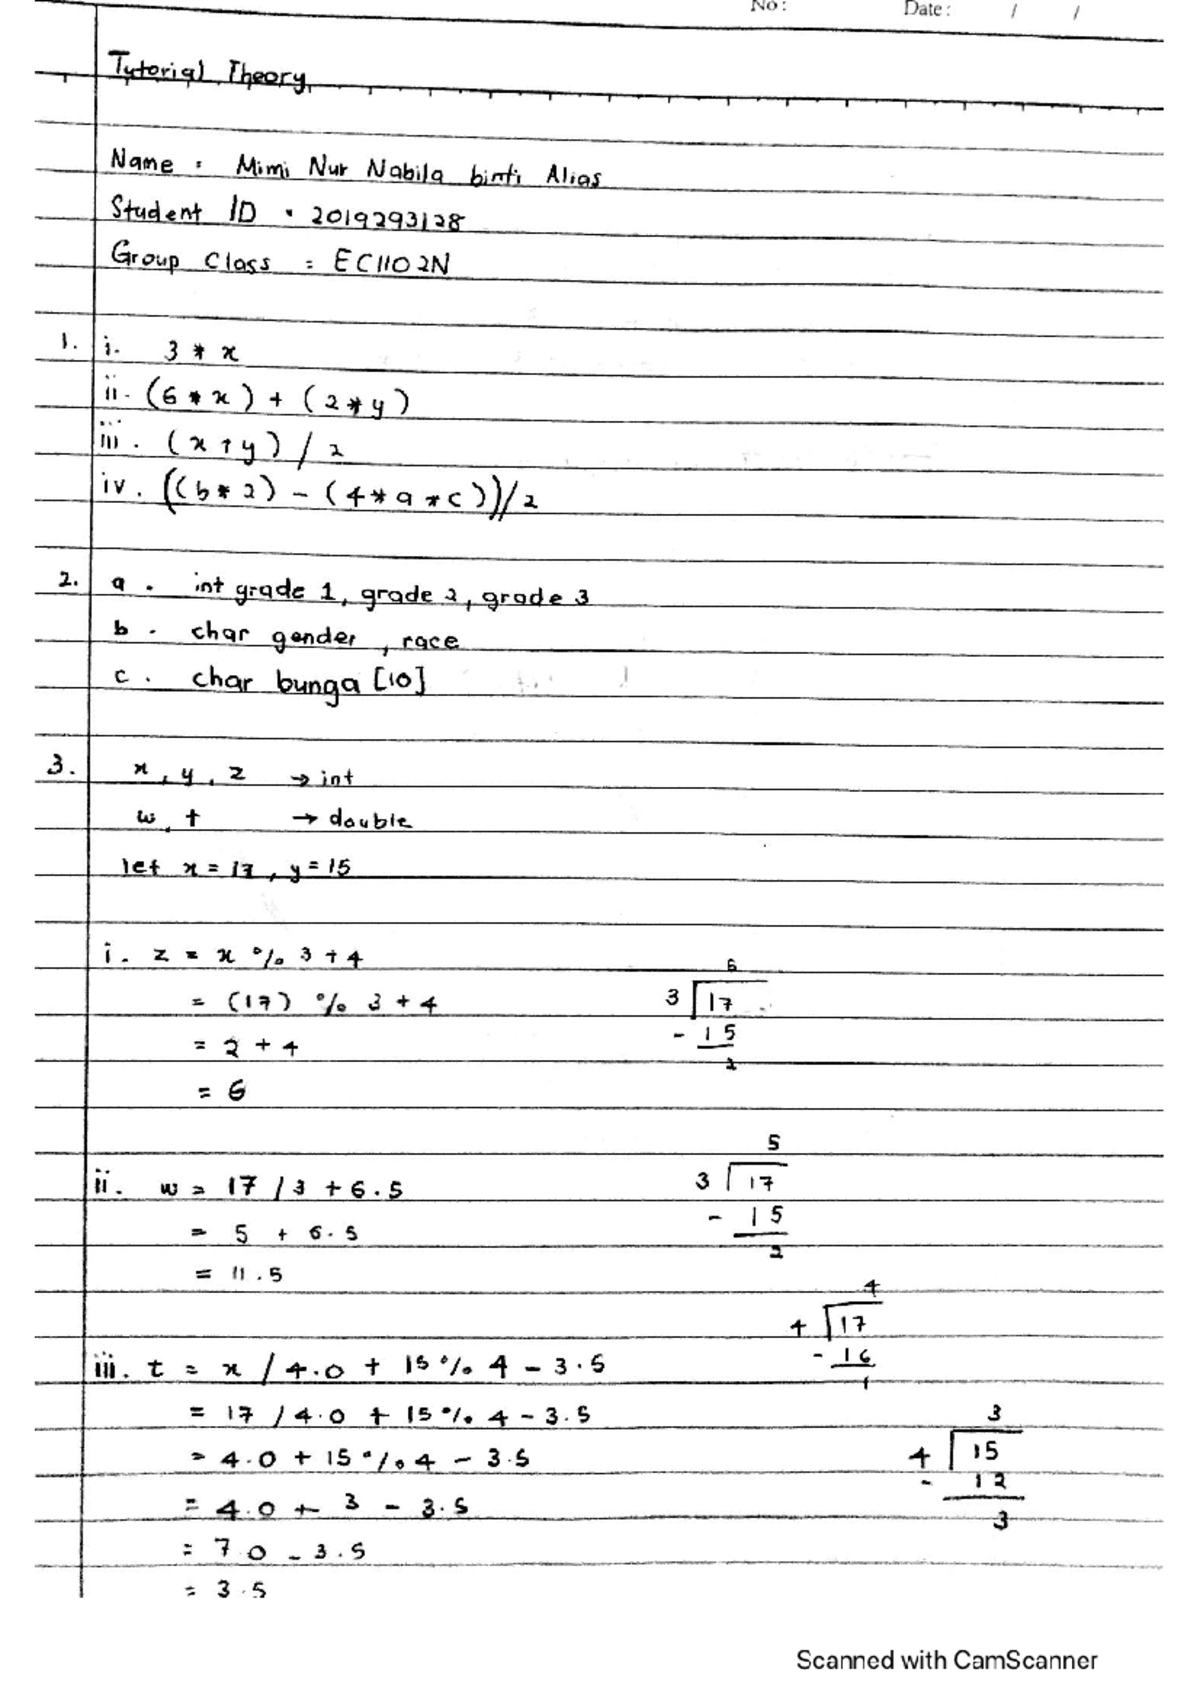 No: Date: / /
Tutorial Theory
Name : Mimi Nur Nabila binti Alias
Student ID : 2019293128
Group Class : EC1102N
1. i. 3 * x
ii. (6 * x) + (2 * y)
iii. (x + y) / 2
iv. ((b * 2) - (4 * a * c)) / 2
2. a. int grade 1, grade 2, grade 3
b. char gender, race
c. char bunga [10]
3. x, y, z → int
w, t → double
let x = 17, y = 15
i. z = x % 3 + 4
= (17) % 3 + 4
= 2 + 4
= 6
5
3 17
- 15
2
ii. w = 17 / 3 + 6.5
= 5 + 6.5
= 11.5
5
3 17
- 15
2
iii. t = x / 4.0 + 15 % 4 - 3.5
= 17 / 4.0 + 15 % 4 - 3.5
= 4.0 + 15 % 4 - 3.5
= 4.0 + 3 - 3.5
= 7.0 - 3.5
= 3.5
4
4 17
- 16
1
3
4 15
- 12
3
Scanned with CamScanner